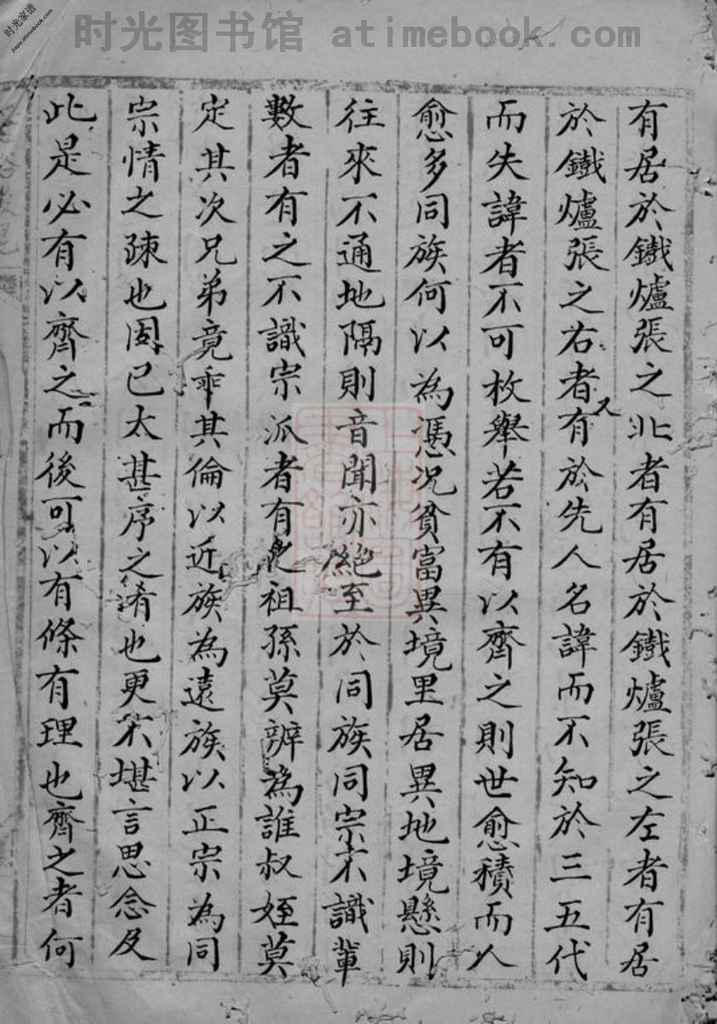 时光图书馆 atimebook.com
时光家谱
www.atimebook.com
有居於鐵爐張之北者有居於鐵爐張之左者有居
於鐵爐張之右者又有於先人名諱而不知於三五代
而失諱者不可枚舉若不有以齊之則世愈積而人
愈多同族何以為憑况貧富異境里居異地境懸則
往來不通地隔則音聞亦絕至於同族同宗不識輩
數者有之不識宗派者有之祖孫莫辨為誰叔姪莫
定其次兄弟竟乖其倫以近族為遠族以正宗為同
宗情之疎也固已太甚序之淆也更不堪言思念及
此是必有以齊之而後可以有條有理也齊之者何